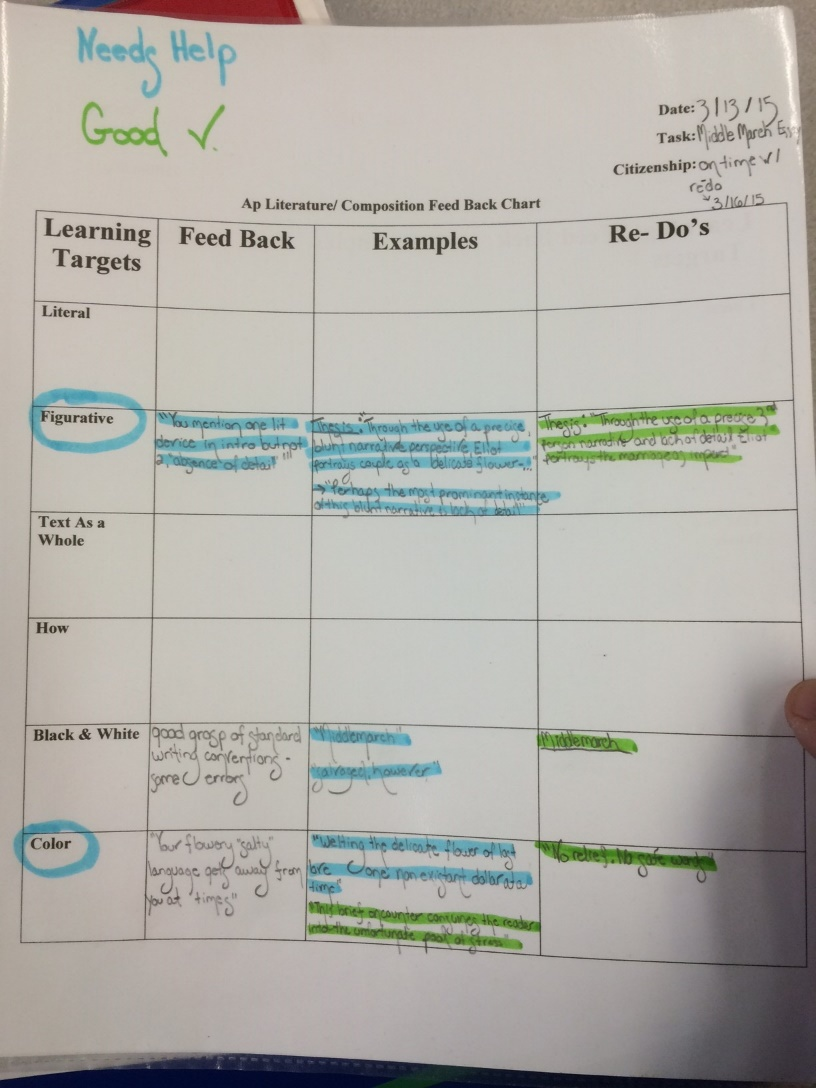 Needs Help
Good ✓.
Date: 3/13/15
Task: Middle March Essay
Citizenship: on time w/
redo
3/16/15
Ap Literature/ Composition Feed Back Chart
Learning Targets
Feed Back
Examples
Re- Do's
Literal
Figurative
"You mention one lit
device in intro but not
2, "absence of detail""
Thesis: "Through the use of a precise,
blunt narrative perspective, Eliot
portrays couple as a delicate flower..."
→ "Perhaps the most prominant instance
of this blunt narrative is lack of detail"
Thesis: "Through the use of a precise 3rd
person narrative and lack of detail Eliot
portrays the marriage
Text As a
Whole
How
Black & White
good grasp of standard
writing conventions -
some errors
"Middemarch"
however"
Middlemarch
Color
"Your flowery "salty"
language gets away from
you at "times"
"Welting the delicate flower of
one non existant dollar at a
time"
"This brief encounter conjures the reader
into the unfortunate pool of stress"
"No relief. No safe words"